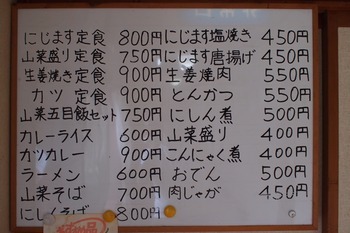 にじます定食 800円
山菜盛り定食 750円
生姜焼き定食 900円
カツ 定食 900円
山菜五目飯セット 750円
カレーライス 600円
カツカレー 900円
ラーメン 600円
山菜そば 700円
にしんそば 800円
にじます塩焼き 450円
にじます唐揚げ 450円
生姜焼肉 550円
とんかつ 550円
にしん煮 500円
山菜盛り 400円
こんにゃく煮 400円
おでん 500円
肉じゃが 450円